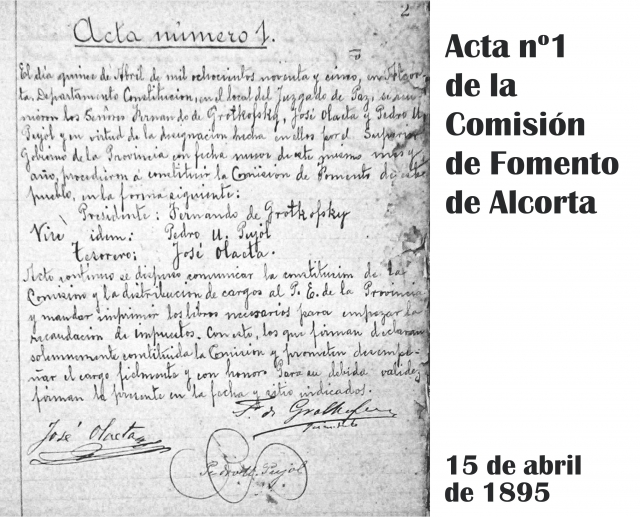 2
Acta número 1.
El día quince de Abril de mil ochocientos noventa y cinco, en Alcor-
ta, Departamento Constitucion, en el local del Juzgado de Paz, se reu-
nieron los Señores Fernando de Grotkofsky, José Olaeta y Pedro U.
Pujól y en virtud de la designacion hecha en ellos por el Superior
Gobierno de la Provincia con fecha nueve de este mismo mes y
año, procedieron á constituir la Comision de Fomento de este
pueblo, en la forma siguiente:
Presidente: Fernando de Grotkofsky
Vice idem: Pedro U. Pujól
Tesorero: José Olaeta.
Acto continuo se dispuso comunicar la constitucion de la
Comision y la distribucion de cargos al P. E. de la Provincia
y mandar imprimir los libros necesarios para empezar la
recaudacion de impuestos. Con esto, los que firman declaran
solemnemente constituida la Comision y prometen desempe-
ñar el cargo fielmente y con honor. Para su debida validez
firman la presente en la fecha y sitio indicados.
F. de Grotkofsky
José Olaeta
Pedro U. Pujól
Acta nº1
de la
Comisión
de Fomento
de Alcorta
15 de abril
de 1895